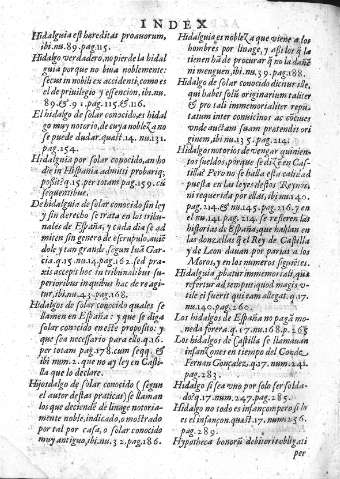 INDEX
Hidalguia est hæreditas proauorum,
ibi.nu.89.pag.115.
Hidalgo verdadero, no pierde la hidal
guia porque no biua noblemente:
secus in nobili ex accidenti, como es
el de priuilegio y essencion, ibi.nu.
89.& 91.pag.115.&.116.
El hidalgo de solar conocido, es hidal
go muy notorio, de cuya nobleza no
se puede dudar. quæst.14.nu.131.
pag.154.
Hidalguia por solar conocido, an ho
die in Hispania admitti probariq;
possit q.15.per totam pag.159.cū
sequentibus.
De hidalguia de solar conocido sin ley
y sin derecho se trata en los tribu-
nales de España, y cada dia se ad
miten sin genero de escrupulo, auiē
dole y tan grande, segun Iuā Gar-
cia.q.15.nu.14.pag.162.sed pra-
xis accept hoc in tribunalibus su-
perioribus in quibus hæc de re agi-
tur, ibi.nu.43.pag.168.
Hidalgos de solar conocido quales se
llamen en España: y que se diga
solar conocido en este proposito: y
que sea necessario para ello.q.16.
per totam pag.178.cum seqq.&
ibi num.2.que no ay ley en Casti-
lla que lo declare.
Hijosdalgo de solar conocido (segun
el autor destas praticas) se llaman
los que deciendē de linage notoria-
mente noble, indicado, o mostrado
por tal por casa, o solar conocido
muy antiguo, ibi.nu.32.pag.186.
Hidalguia es nobleza que viene a los
hombres por linage, y assi los q̄ la
tienen hā de procurar q̄ no la dañē
ni menguen, ibi.nu.39.pag.188.
Hidalgo de solar conocido dicitur ille,
qui habet solū originarium taliter
& pro tali immemorialiter repu-
tatum inter conuicinos ac coœtues
vnde auctam suam prætendit ori
ginem, ibi.nu.135.pag.214.
Hidalgos notorios de vengar quinien-
tos sueldos, porque se dizē en Cas-
tilla? Pero no se halla esta calidad
puesta en las leyes destos Reynos,
ni requerida por ellas, ibi.nu.140.
pag.214.& nu.145.pag.216.y en
el nu.141.pag.214.se refieren las
historias de España, que hablan en
las donzellas q̄ el Rey de Castilla
y de Leon dauan por parias a los
Moros, y en los numeros siguiētes.
Hidalguia, probatur immemoriali, quæ
refertur ad tempus quod magis v-
tile ei fuerit qui eam allegat.q.17.
nu.140.pag.260.
Los hidalgos de España no pagā mo-
neda forera.q.17.nu.168.p.265
Los hidalgos de Castilla se llamauan
infançones en tiempo del Conde
Fernan Gonçalez.q.17.num.241.
pag.283.
Hidalgo si sea vno por solo ser solda-
do?q.17.num.247.pag.285.
Hidalgo no todo es infançon pero si lo
es el infançon.quæst.17.num.256.
pag.289.
Hypotheca bonorū debitoris obligati
per